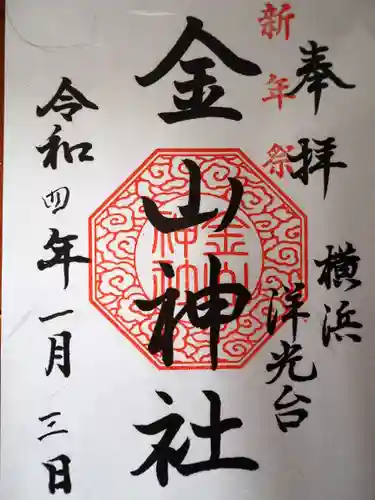 奉拝
横浜
洋光台
新年祭
金山神社
令和四年一月三日